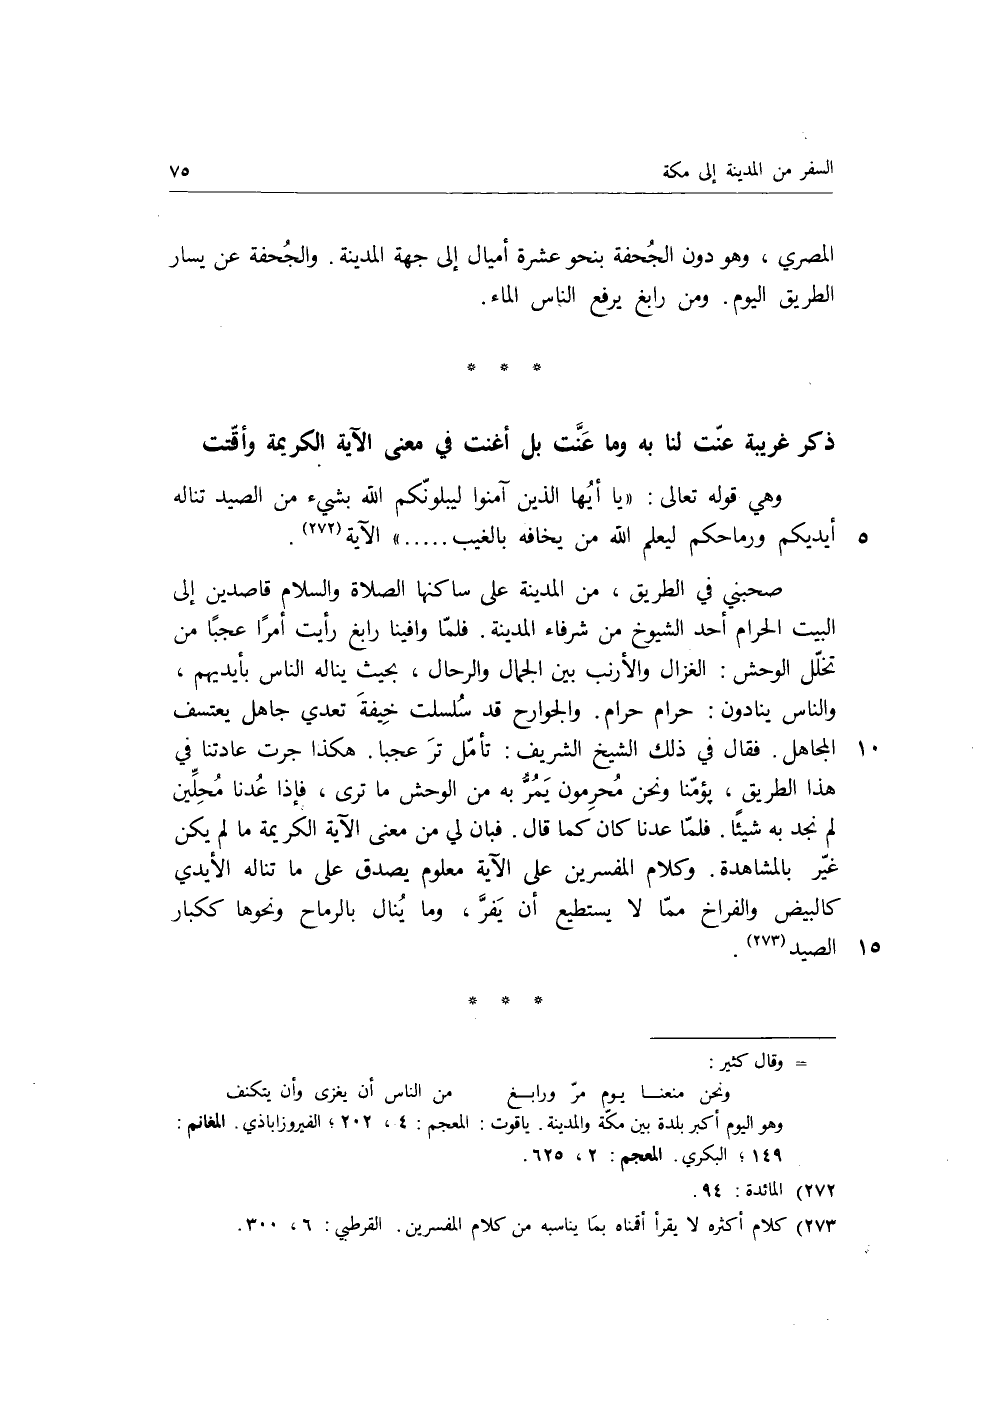 السفر من المدينة إلى مكة ٧٥
المصري ، وهو دون الجُحفة بنحو عشرة أميال إلى جهة المدينة . والجُحفة عن يسار
الطريق اليوم . ومن رابغ يرفع الناس الماء .
* * *
ذكر غريبة عنّت لنا به وما عَنَّت بل أغنت في معنى الآية الكريمة وأقّتت
وهي قوله تعالى : «يا أيُها الذين آمنوا ليبلونّكم الله بشيء من الصيد تناله
٥ أيديكم ورماحكم ليعلم الله من يخافه بالغيب .....» الآية (٢٧٢) .
صحبني في الطريق ، من المدينة على ساكنها الصلاة والسلام قاصدين إلى
البيت الحرام أحد الشيوخ من شرفاء المدينة . فلمّا وافينا رابغ رأيت أمرًا عجبًا من
تخلّل الوحش : الغزال والأرنب بين الجمال والرحال ، بحيث يناله الناس بأيديهم ،
والناس ينادون : حرام حرام . والجوارح قد سُلسلت خِيفةَ تعدي جاهل يعتسف
١٠ المجاهل . فقال في ذلك الشيخ الشريف : تأمّل ترَ عجبا . هكذا جرت عادتنا في
هذا الطريق ، يؤمّنا ونحن مُحرِمون يَمُرُّ به من الوحش ما ترى ، فإذا عُدنا مُحلِّين
لم نجد به شيئًا . فلمّا عدنا كان كما قال . فبان لي من معنى الآية الكريمة ما لم يكن
غيّر بالمشاهدة . وكلام المفسرين على الآية معلوم يصدق على ما تناله الأيدي
كالبيض والفراخ ممّا لا يستطيع أن يَفرَّ ، وما يُنال بالرماح ونحوها ككبار
١٥ الصيد (٢٧٣) .
* * *
= وقال كثير :
ونحن منعنـــا يـوم مرّ ورابــغ من الناس أن يغزى وأن يتكنف
وهو اليوم أكبر بلدة بين مكّة والمدينة . ياقوت : المعجم : ٤ ، ٢٠٢ ؛ الفيروزاباذي . المغانم :
١٤٩ ؛ البكري . المعجم : ٢ ، ٦٢٥ .
٢٧٢) المائدة : ٩٤ .
٢٧٣) كلام أكثره لا يقرأ أقمناه بما يناسبه من كلام المفسرين . القرطبي : ٦ ، ٣٠٠ .